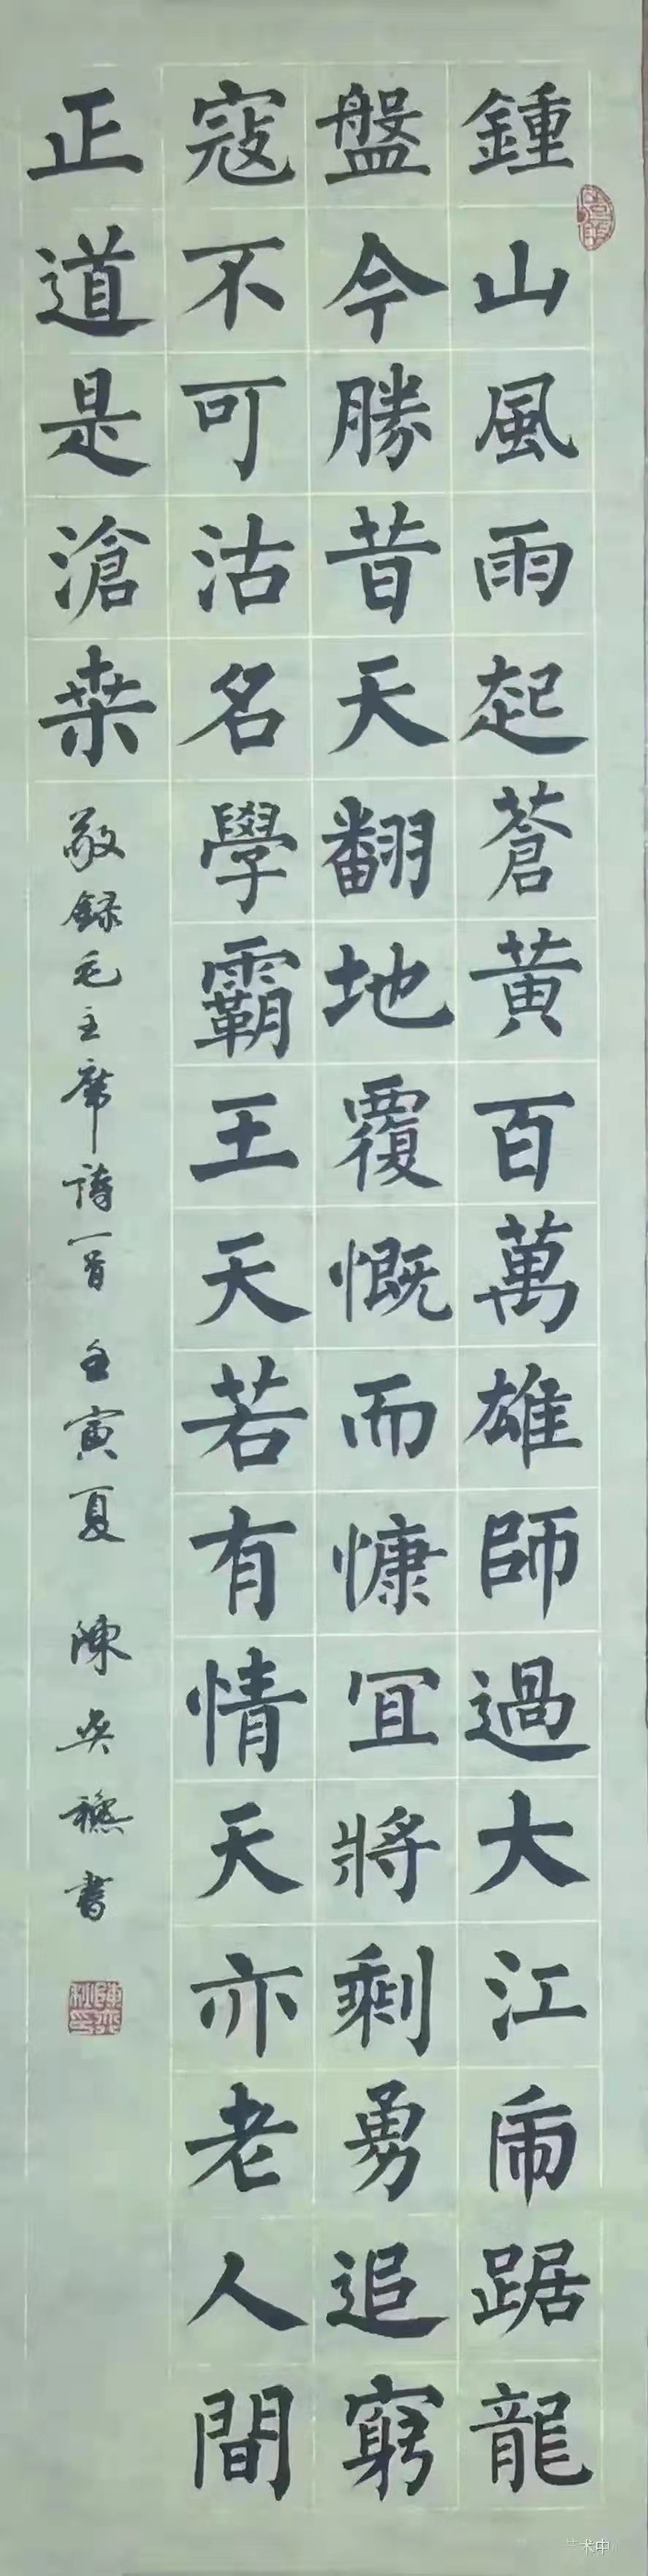 鍾山風雨起蒼黃百萬雄師過大江乕踞龍
盤今勝昔天翻地覆慨而慷冝將剩勇追窮
寇不可沽名學霸王天若有情天亦老人間
正道是滄桒
敬錄毛主席詩一首 壬寅夏 陳奕書
陳奕秋印
术中